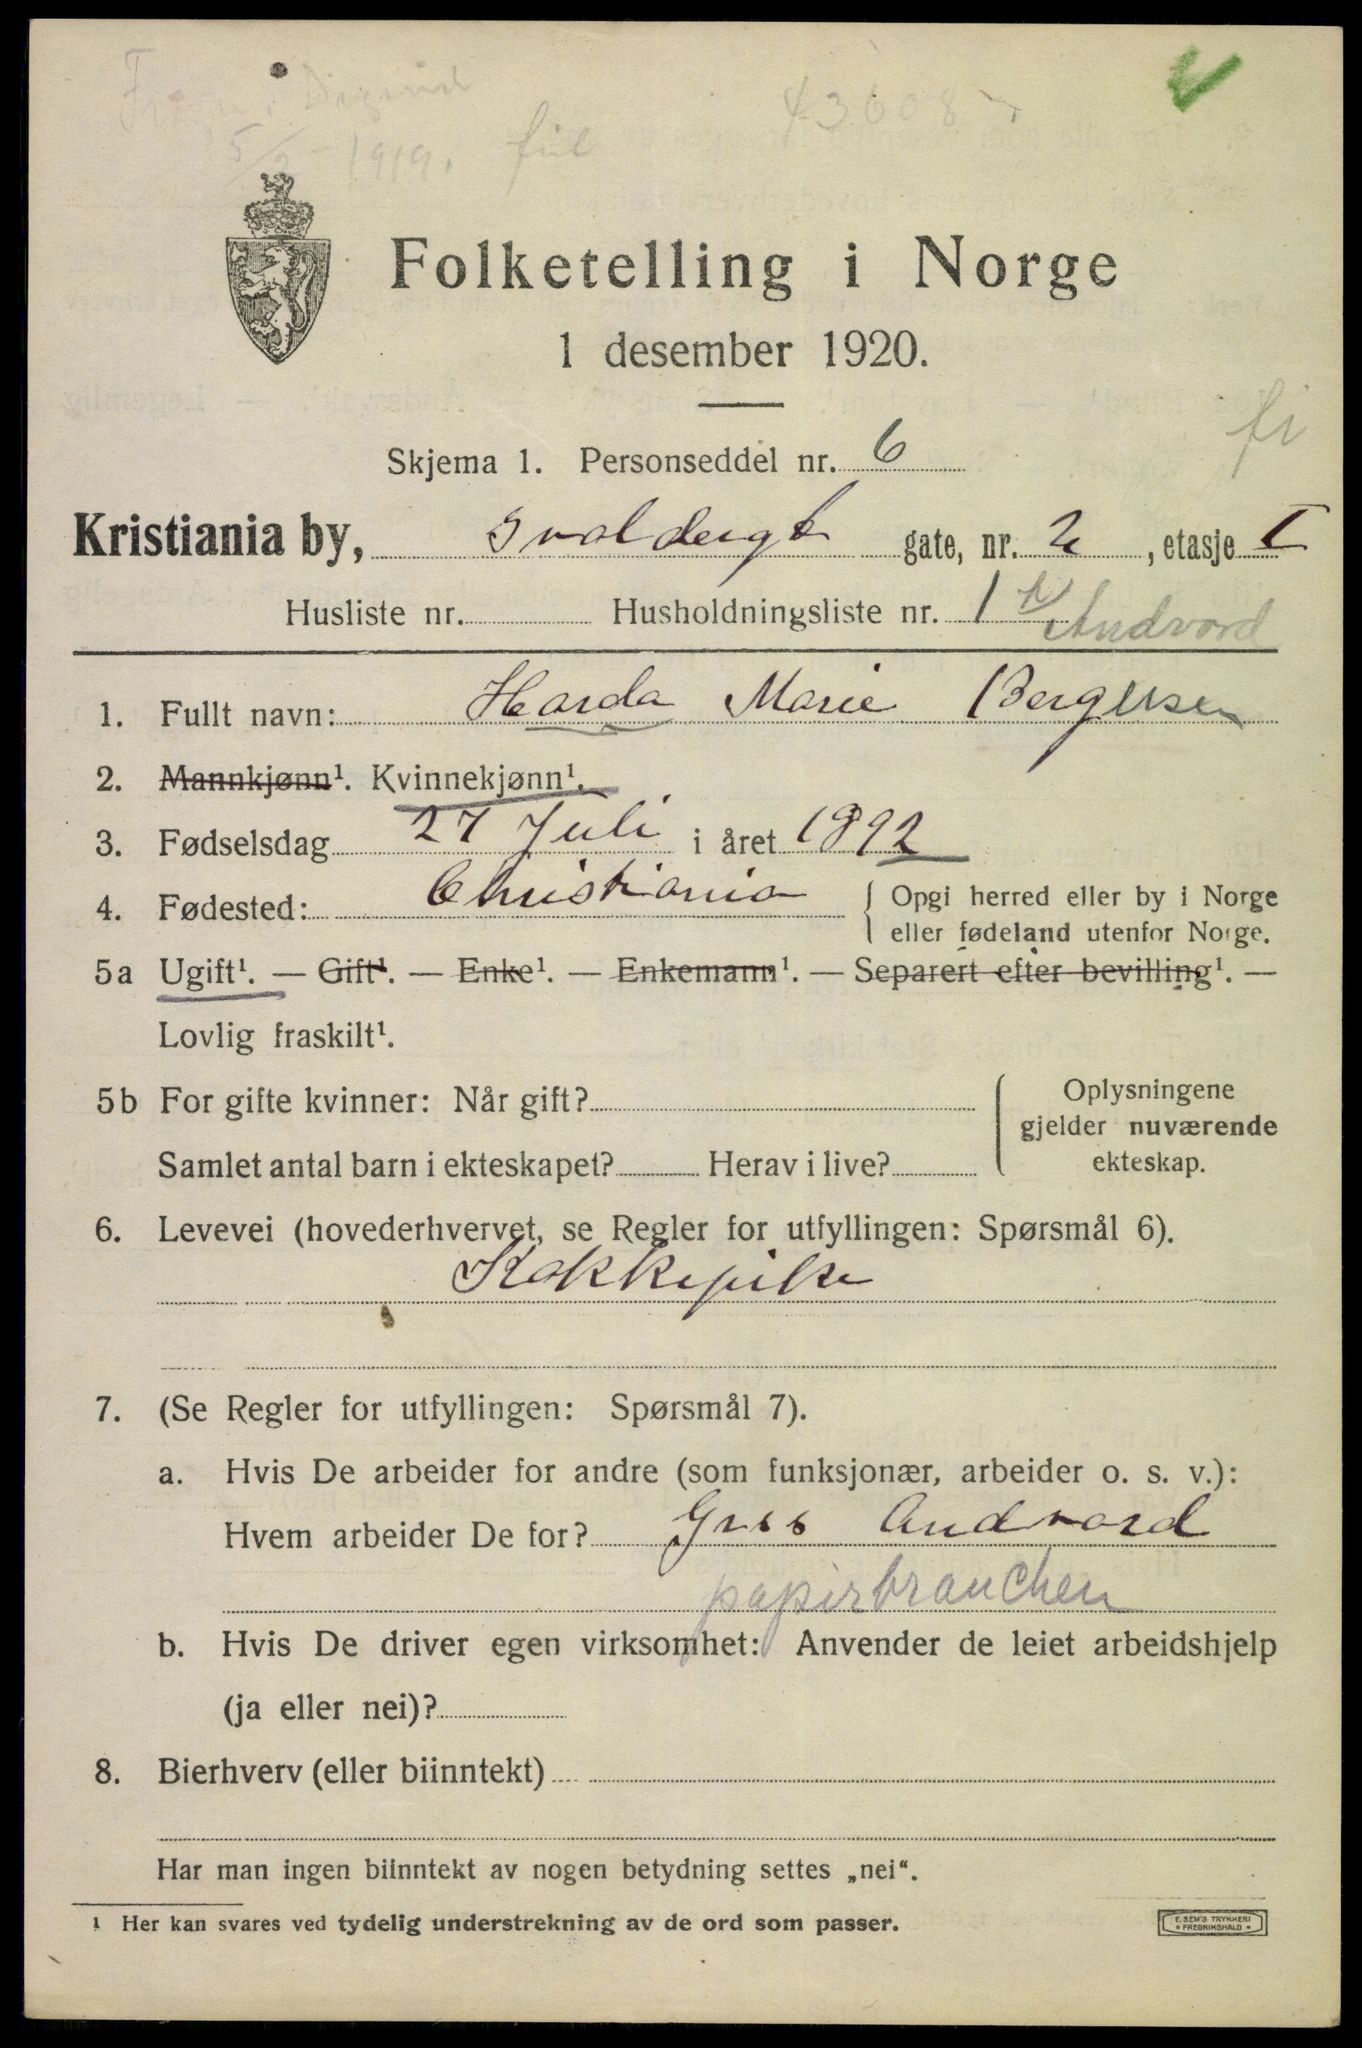 5/2 - 1919.
43608
Folketelling i Norge
1 desember 1920.
fi
Skjema 1. Personseddel nr. 6
Kristiania by, Svoldergt gate, nr. 2, etasje I
Husliste nr. Husholdningsliste nr. 1 h/ Andvord
1. Fullt navn: Harda Marie Bergersen
2. Mannkjønn¹. Kvinnekjønn¹.
3. Fødselsdag 27 Juli i året 1892
4. Fødested: Christiania { Opgi herred eller by i Norge
eller fødeland utenfor Norge.
5a Ugift¹. — Gift¹. — Enke¹. — Enkemann¹. — Separert efter bevilling¹. —
Lovlig fraskilt¹.
5b For gifte kvinner: Når gift?
Oplysningene
gjelder nuværende
ekteskap.
Samlet antal barn i ekteskapet? Herav i live?
6. Levevei (hovederhvervet, se Regler for utfyllingen: Spørsmål 6).
Kokkepike
7. (Se Regler for utfyllingen: Spørsmål 7).
a. Hvis De arbeider for andre (som funksjonær, arbeider o. s. v.):
Hvem arbeider De for? Gross Andvord
papirbranchen
b. Hvis De driver egen virksomhet: Anvender de leiet arbeidshjelp
(ja eller nei)?
8. Bierhverv (eller biinntekt)
Har man ingen biinntekt av nogen betydning settes „nei“.
¹ Her kan svares ved tydelig understrekning av de ord som passer.
E. SEM'S TRYKKERI
* FREDRIKSHALD *